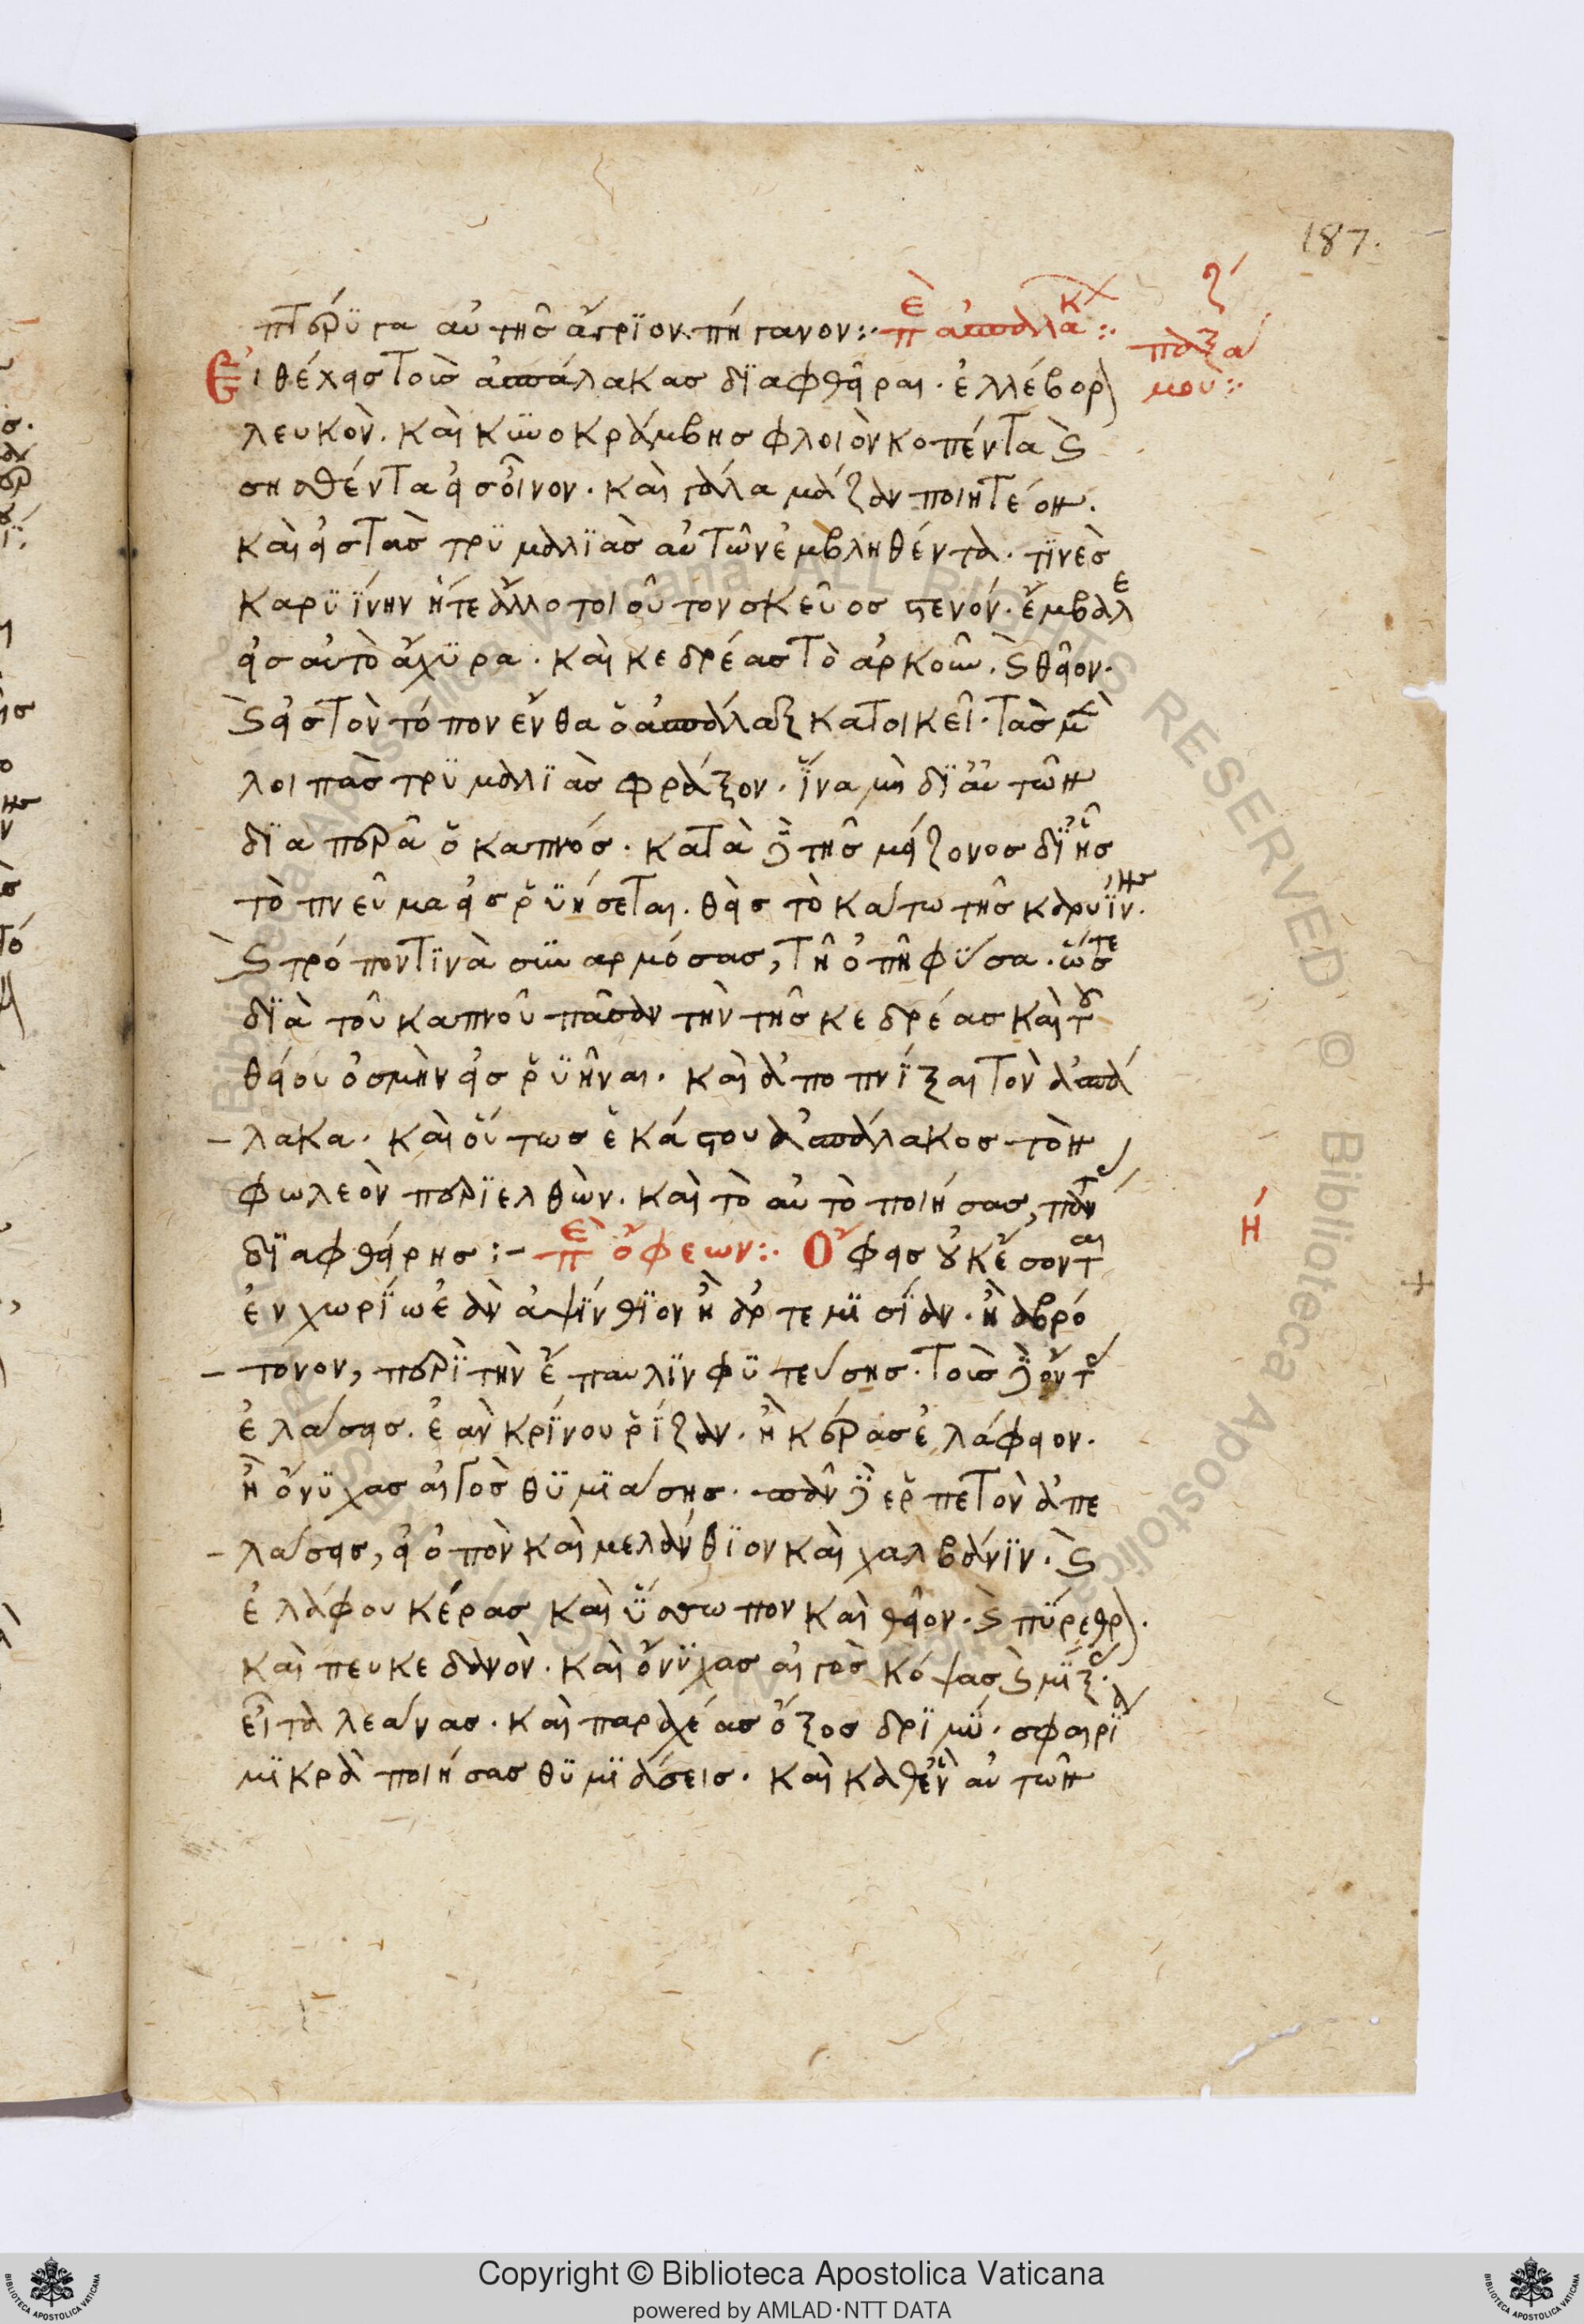 187.
πτέρυγα αὐτῆς ἄγριον πήγανον:· πε ἀσπάλακ:·
ζ´
παξά
μου:·
Εἰ θέλεις τοὺς ἀσπάλακας διαφθεῖραι· ἐλλέβορ
λευκὸν· καὶ κυνοκράμβης φλοιὸν κοπέντα καὶ
σησθέντα εἰς οἶνον· καὶ γάλα μάζαν ποιητέον·
καὶ εἰς τὰς τρυμαλιὰς αὐτῶν ἐμβληθέντα· τινὲς
καρυΐνην ἤτε ἄλλο τοιοῦτον σκεῦος στενόν· ἔμβαλε
εἰς αὐτὸ ἄχυρα· καὶ κεδρέας τὸ ἀρκοῦν· καὶ θεῖον·
καὶ εἰς τὸν τόπον ἔνθα ὁ ἀσπάλαξ κατοικεῖ· τὰς μὲν
λοιπὰς τρυμαλιὰς φράξον· ἵνα μὴ δι αὐτῶν
διαπερᾶ ὁ καπνός· κατὰ δὲ τῆς μείζονος δι ἧς
τὸ πνεῦμα εἰσρυήσεται· θεὶς τὸ κάτω τῆς καρυΐνης·
καὶ τρόπον τινὰ συναρμόσας, τῆ ὀπῆ φύσα· ὥστε
διὰ τοῦ καπνοῦ πᾶσαν τὴν τῆς κεδρέας καὶ τοῦ
θείου ὀσμὴν εἰσρυῆναι· καὶ ἀποπνίξαι τὸν ἀσπά
-λακα· καὶ οὕτως ἑκάστου ἀσπάλακος τὸν
φωλεὸν περιελθὼν· καὶ τὸ αὐτὸ ποιήσας, πάντας
διαφθείρης:- πε ὄφεων:· Ὄφεις οὐκ ἔσονται
ή
ἐν χωρίω ἐὰν ἀψίνθιον ἢ ἀρτεμισίαν· ἢ ἀβρό
-τονον, περὶ τὴν ἔπαυλιν φυτεύσης· τοὺς δὲ ὄντας
ἐλάσεις· ἐὰν κρίνου ῥίζαν· ἢ κέρας ἐλάφειον·
ἢ ὄνυχας αἰγὸς θυμιάσης· πᾶν δὲ ἑρπετὸν ἀπε
-λάσεις, εἰ ὀπὸν καὶ μελάνθιον καὶ χαλβάνιν· καὶ
ἐλάφου κέρας καὶ ὕσσωπον καὶ θεῖον· καὶ πύρεθρ·
καὶ πευκεδανὸν· καὶ ὄνυχας αἰγὸς κόψας καὶ μίξας·
εἶτα λεάνας· καὶ παραχέας ὄξος δριμύ· σφαιρία
μικρὰ ποιήσας θυμιάσεις· καὶ καθ ἓν αὐτῶν
Copyright © Biblioteca Apostolica Vaticana
powered by AMLAD·NTT DATA